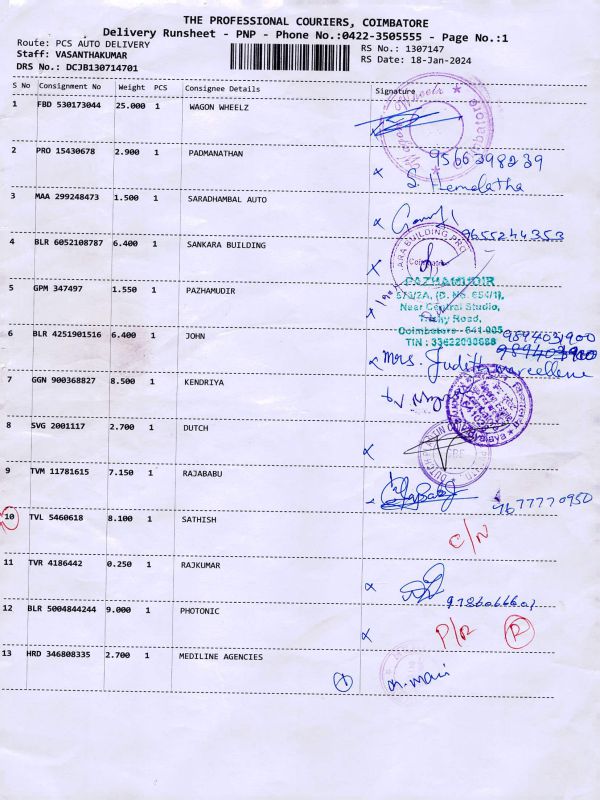 THE PROFESSIONAL COURIERS, COIMBATORE
Delivery Runsheet - PNP - Phone No.:0422-3505555 - Page No.:1
Route: PCS AUTO DELIVERY RS No.: 1307147
Staff: VASANTHAKUMAR RS Date: 18-Jan-2024
DRS No.: DCJB130714701
S No Consignment No Weight PCS Consignee Details Signature
1 FBD 530173044 25.000 1 WAGON WHEELZ
2 PRO 15430678 2.900 1 PADMANATHAN 9566398239
S. Hemalatha
3 MAA 299248473 1.500 1 SARADHAMBAL AUTO
9655244353
4 BLR 6052108787 6.400 1 SANKARA BUILDING
5 GPM 347497 1.550 1 PAZHAMUDIR
PAZHAMUDIR
Near Central Studio,
Trichy Road,
Coimbatore - 641 005
6 BLR 4251901516 6.400 1 JOHN 9894031900
Mrs. Judith Marcellene
7 GGN 900368827 8.500 1 KENDRIYA
8 SVG 2001117 2.700 1 DUTCH
9 TVM 11781615 7.150 1 RAJABABU
10 TVL 5460618 8.100 1 SATHISH C/N
11 TVR 4186442 0.250 1 RAJKUMAR
12 BLR 5004844244 9.000 1 PHOTONIC P/R R
13 HRD 346808335 2.700 1 MEDILINE AGENCIES